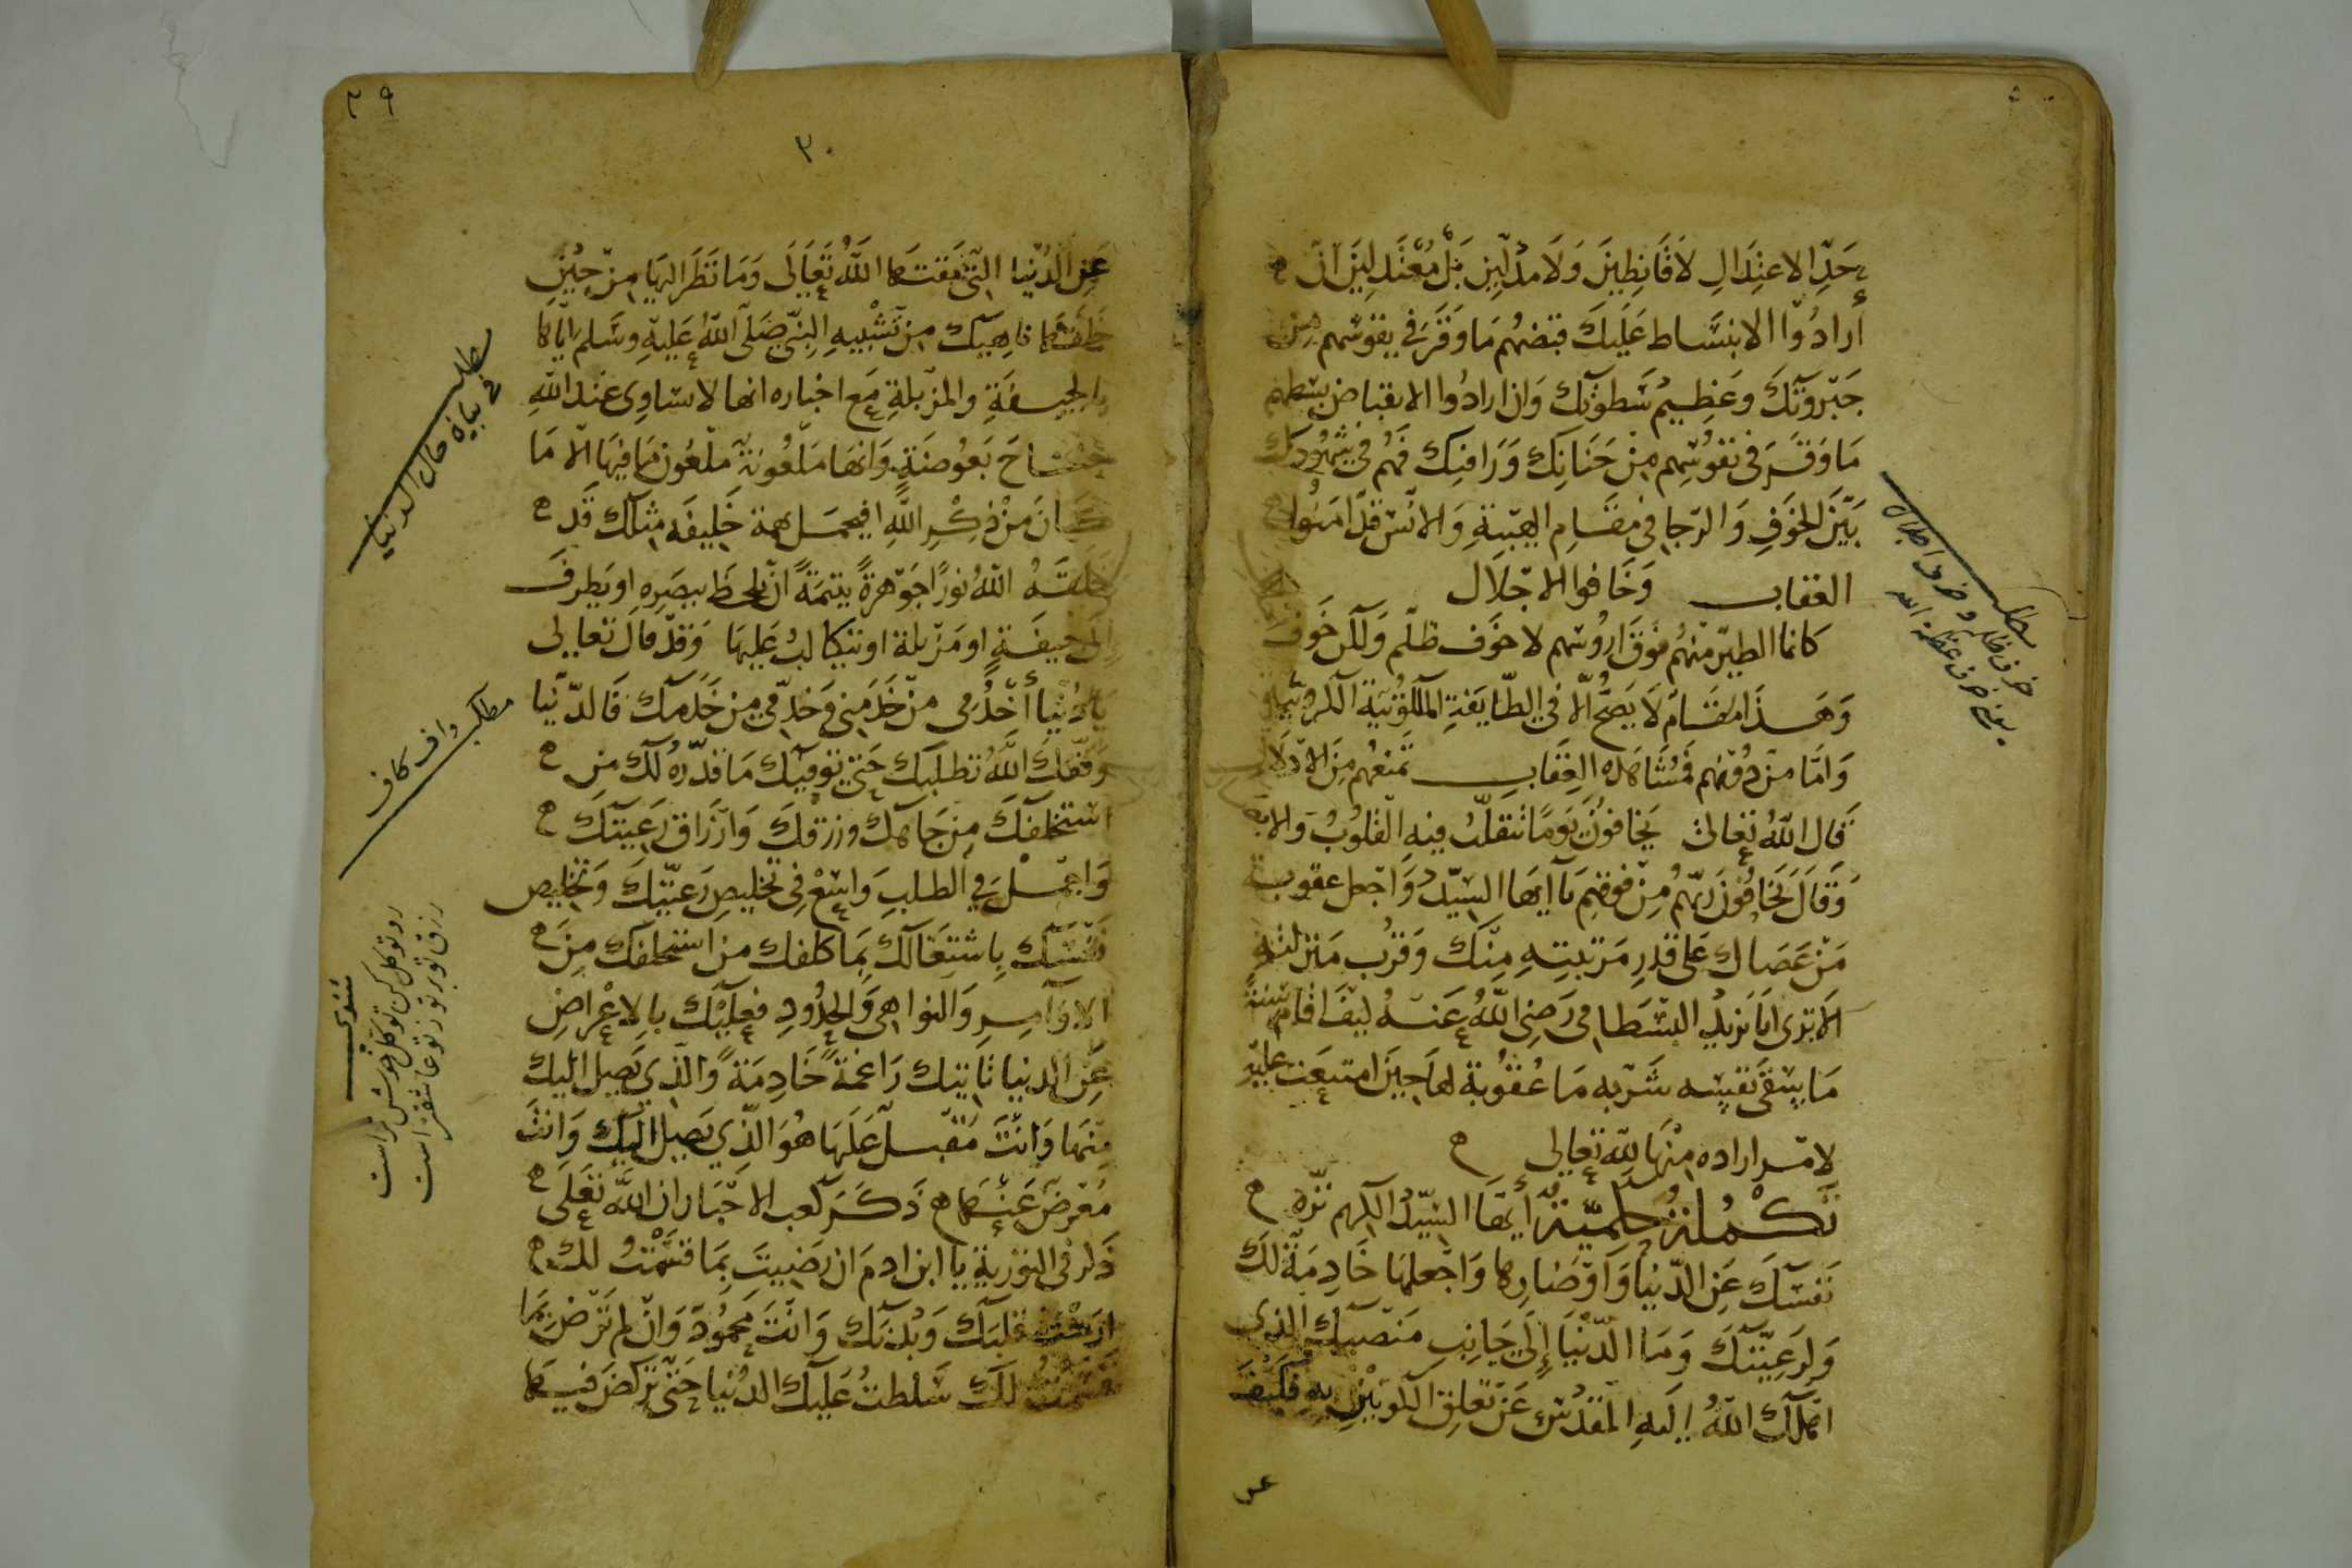 حَدِّ الاعتِدَالِ لاَ قَانِطِينَ وَلَا مُدلِّين بَلْ مُعْتَدِلِينَ ان
أرادُوا الانبسَاط عَلَيكَ قبَضَهُم مَا وَقَرَ في نفوسهم من
جَبَروتكَ وعَظيم سَطوتك وَان ارادُوا الانقباض بسَطهم
مَا وَقَرَ في نفوسِهم مِنْ حَنَانِك وَرَافتِك فَهُم في شهودك
بَيْنَ الخوَفِ وَالرّجا في مقَامِ الهَيبَةِ وَالانْس قدْ امنوا
العقاب وَخَافوا الاجْلَال
كانما الطيْر منهُم فوقَ اروُسهم لا خوَف ظلْم وَلكن خَوف
وَهَذا مقَام لَا يَصحّ الّا في الطّايفةِ الملكوتيّة الكروبية
وَامّا منْ دُونهم فمُشَاهَدة العِقَاب تمنعُهم مِنَ الادلا
قَال اللهُ تعالىٰ يَخافونَ يَومًا تتقلّبُ فيه القلوُبُ وَالابص
وَقَالَ يَخَافُونَ رَبّهُم مِنْ فوقِهِم يَا ايهَا السيّد وَاجعل عقوبة
مَنْ عَصَاك عَلى قدرِ مَرتبتِهِ مِنكَ وَقرُب مَنزلته
الَا ترى ابَا يزيدُ البسْطامى رَضِىَ اللهُ عَنهُ ليْفَ اقَام سَنةً
مَا يسْقى نفسِه شَربه مَا عُقُوبة لهَا حِينَ امتنعَت عليه
لامر اراده منْهَا لله تعَالى
تَكْمُلَةٌ حِكميّة أيّهَا السّيّدُ الكريم نزّه
نَفسَكَ عَنِ الدّنيَا وَاوَضارِهَا وَاجْعلهَا خَادِمَةً لكَ
وَلرَعِيّتكَ وَمَا الدّنْيَا إلَى جَانِبِ مَنصبكِ الذي
اهلكَ اللهُ إليهِ المقدّس عَنْ تعلق الكونيْن بهِ فكيْفَ
عن
مطلب
خوف ظلم وخوف اجلال
يعني خوف عظمة الله
٣٩
٣٠
عَنِ الدُنيا التي مَقتهَا اللهُ تَعَالَى وَمَا نَظَرَ اليهَا مِنْ حِيْنِ
خَلقهَا ناهِيكَ مِن تَشْبِيهِ النبّي صَلى اللهُ عَليهِ وسَلم ايّاهَا
بالجيفَةِ والمزْبلةِ مَع اخباره انها لا تساوى عَندَ اللهِ
جنَاحَ بَعُوضَةٍ وَانّهَا مَلعُونَةٌ ملعُون مَا فِيهَا الّا مَا
كَانَ مِنْ ذِكْرِ اللهِ افيجمل بهمة خَليفَه مثلك قَد
خلقَهُ اللهُ نورًا جَوهرةً يتيمَةً انْ يلحظَ ببصَرِهِ او يَطرفَ
الى جِيفَةٍ او مَزبلة او يتكالبُ عَليهَا وَقَدْ قال تعالى
يا دُنْيَا أخْدُمى منْ خَدَمنى وَخْدّمى مِن خَدمك فَالدّنيا
وَفّقك اللهُ تطلبك حَتى توفيك مَا قدّرهُ لكَ من
استخلفكَ مِن جَاهك ورزقكَ وَارْزَاق رَعِيتكَ
وَاجْمِلْ في الطلبِ وَاسْعْ في تخليصِ رَعيّتكَ وَتخليص
نفسَكَ بِاشتغالكَ بِمَا كلفك من استخلفكَ مِنَ
الاوَامِرِ وَالنواهى وَالحدُودِ فعلَيْك بالاعْراضِ
عَنِ الدنيا تاتيك رَاغمةً خَادِمَةً وَالذي يَصِل اليكَ
مِنهَا وَانتَ مُقبلٌ عَليهَا هُوَ الذي يَصِل اليك وَانتَ
مُعْرضٌ عَنهَا ذَكَرَ كعب الاحبَار ان اللهَ تعَلَى
ذَكر في التوْرية يا ابنَ ادمَ ان رَضيتَ بِمَا قسَمْتُ لك
ارَحْتُ قلبَك وَبُدنك وَانتَ محمُودٌ وَانْ لم تَرْضَ بما
قسَمْتُ لكَ سَلطتُ عَليكَ الدُنيا حَتى تركضَ فيهَا
مطلب
في بيان حال الدنيا
مطلب واف كاف
مثنوى
رو توكل كن
رزق تو بر تو ز تو عاشقتر است